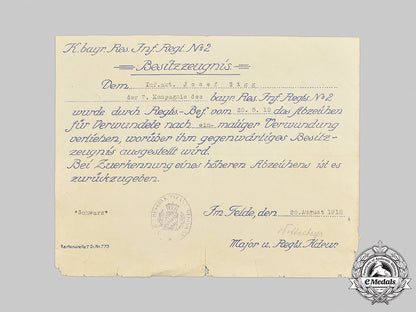 K. bayr. Res. Inf. Regt. Nº 2
Besitzzeugnis
Dem Inf.akt. Josef Bigg
der 7. Kompagnie des bayr. Res. Inf. Regts. Nº 2
wurde durch Regts.-Bef. vom 20.8.18 das Abzeichen
für Verwundete nach ein- maliger Verwundung
verliehen, worüber ihm gegenwärtiges Besitz-
zeugnis ausgestellt wird.
Bei Zuerkennung eines höheren Abzeichens ist es
zurückzugeben.
Im Felde, den 20. August 1918
"Schwarz"
Major u. Regts. Kdeur.
Kartenstelle 7 Dr. Nr. 773
eMedals